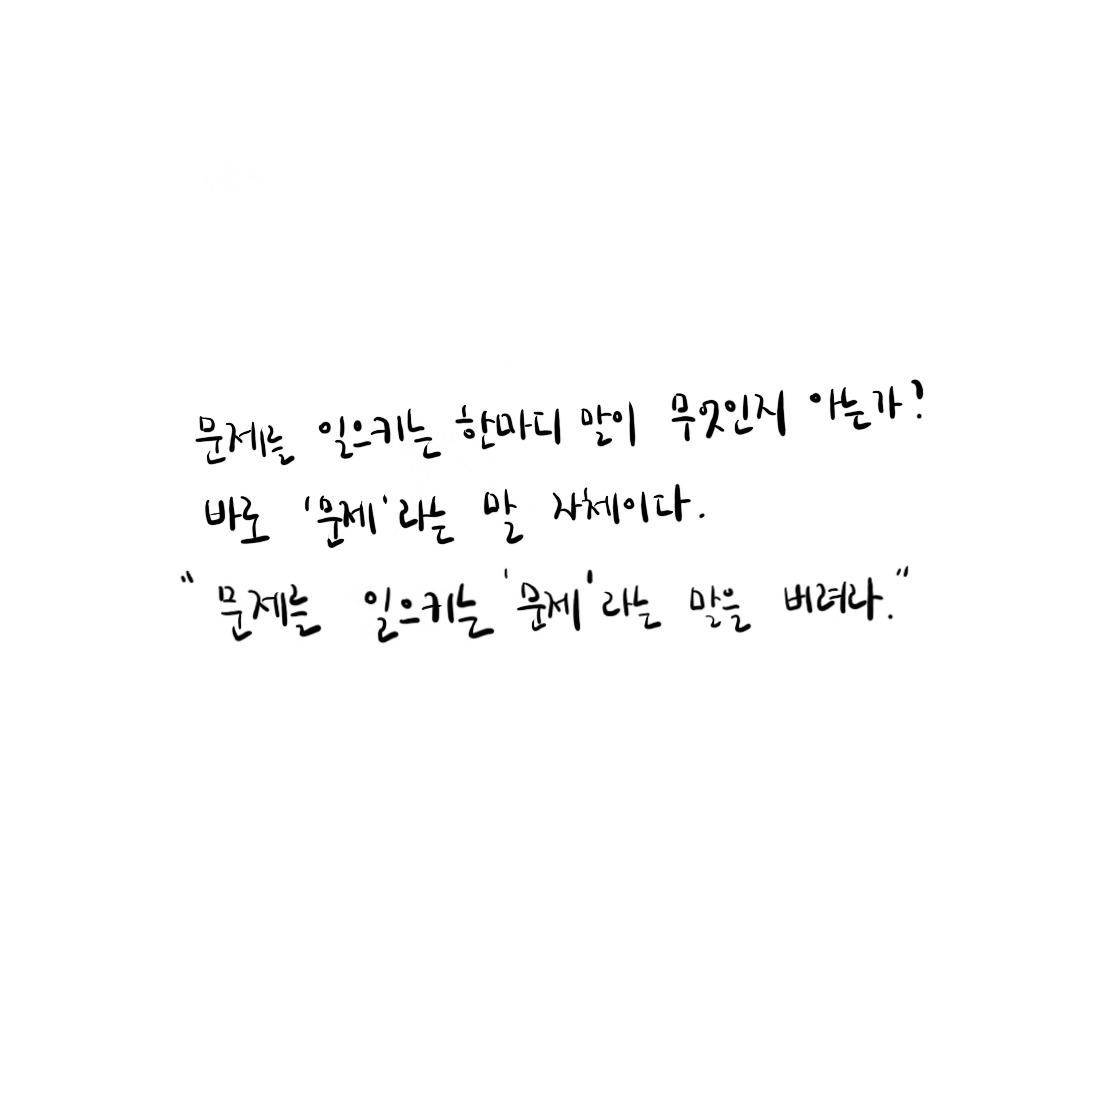 문제를 일으키는 한마디 말이 무엇인지 아는가?
바로 '문제'라는 말 자체이다.
"문제를 일으키는 '문제'라는 말을 버려라."